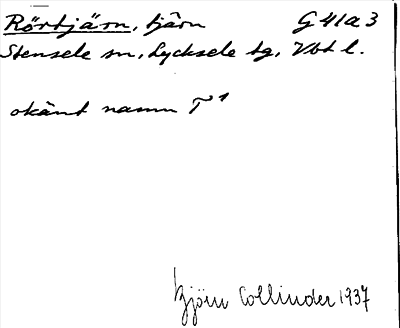 Rörtjärn, tjärn G 41a3
Stensele sn, Lycksele tg, Vbt l.
okänt namn T¹
Björn Collinder 1937